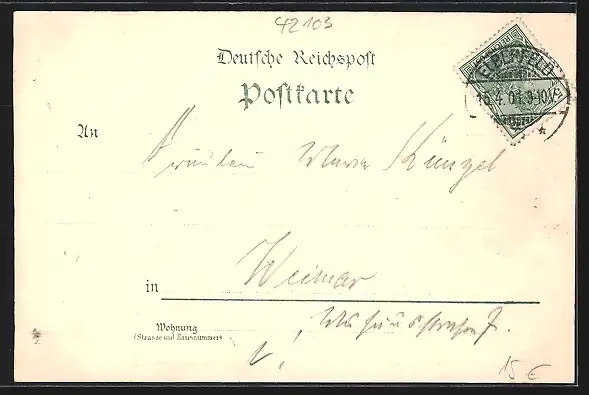 42103
Deutsche Reichspost
Postkarte
ELBERFELD
An
Fräulein Künzel
in Weimar
Wohnung
(Strasse und Hausnummer)
15 €